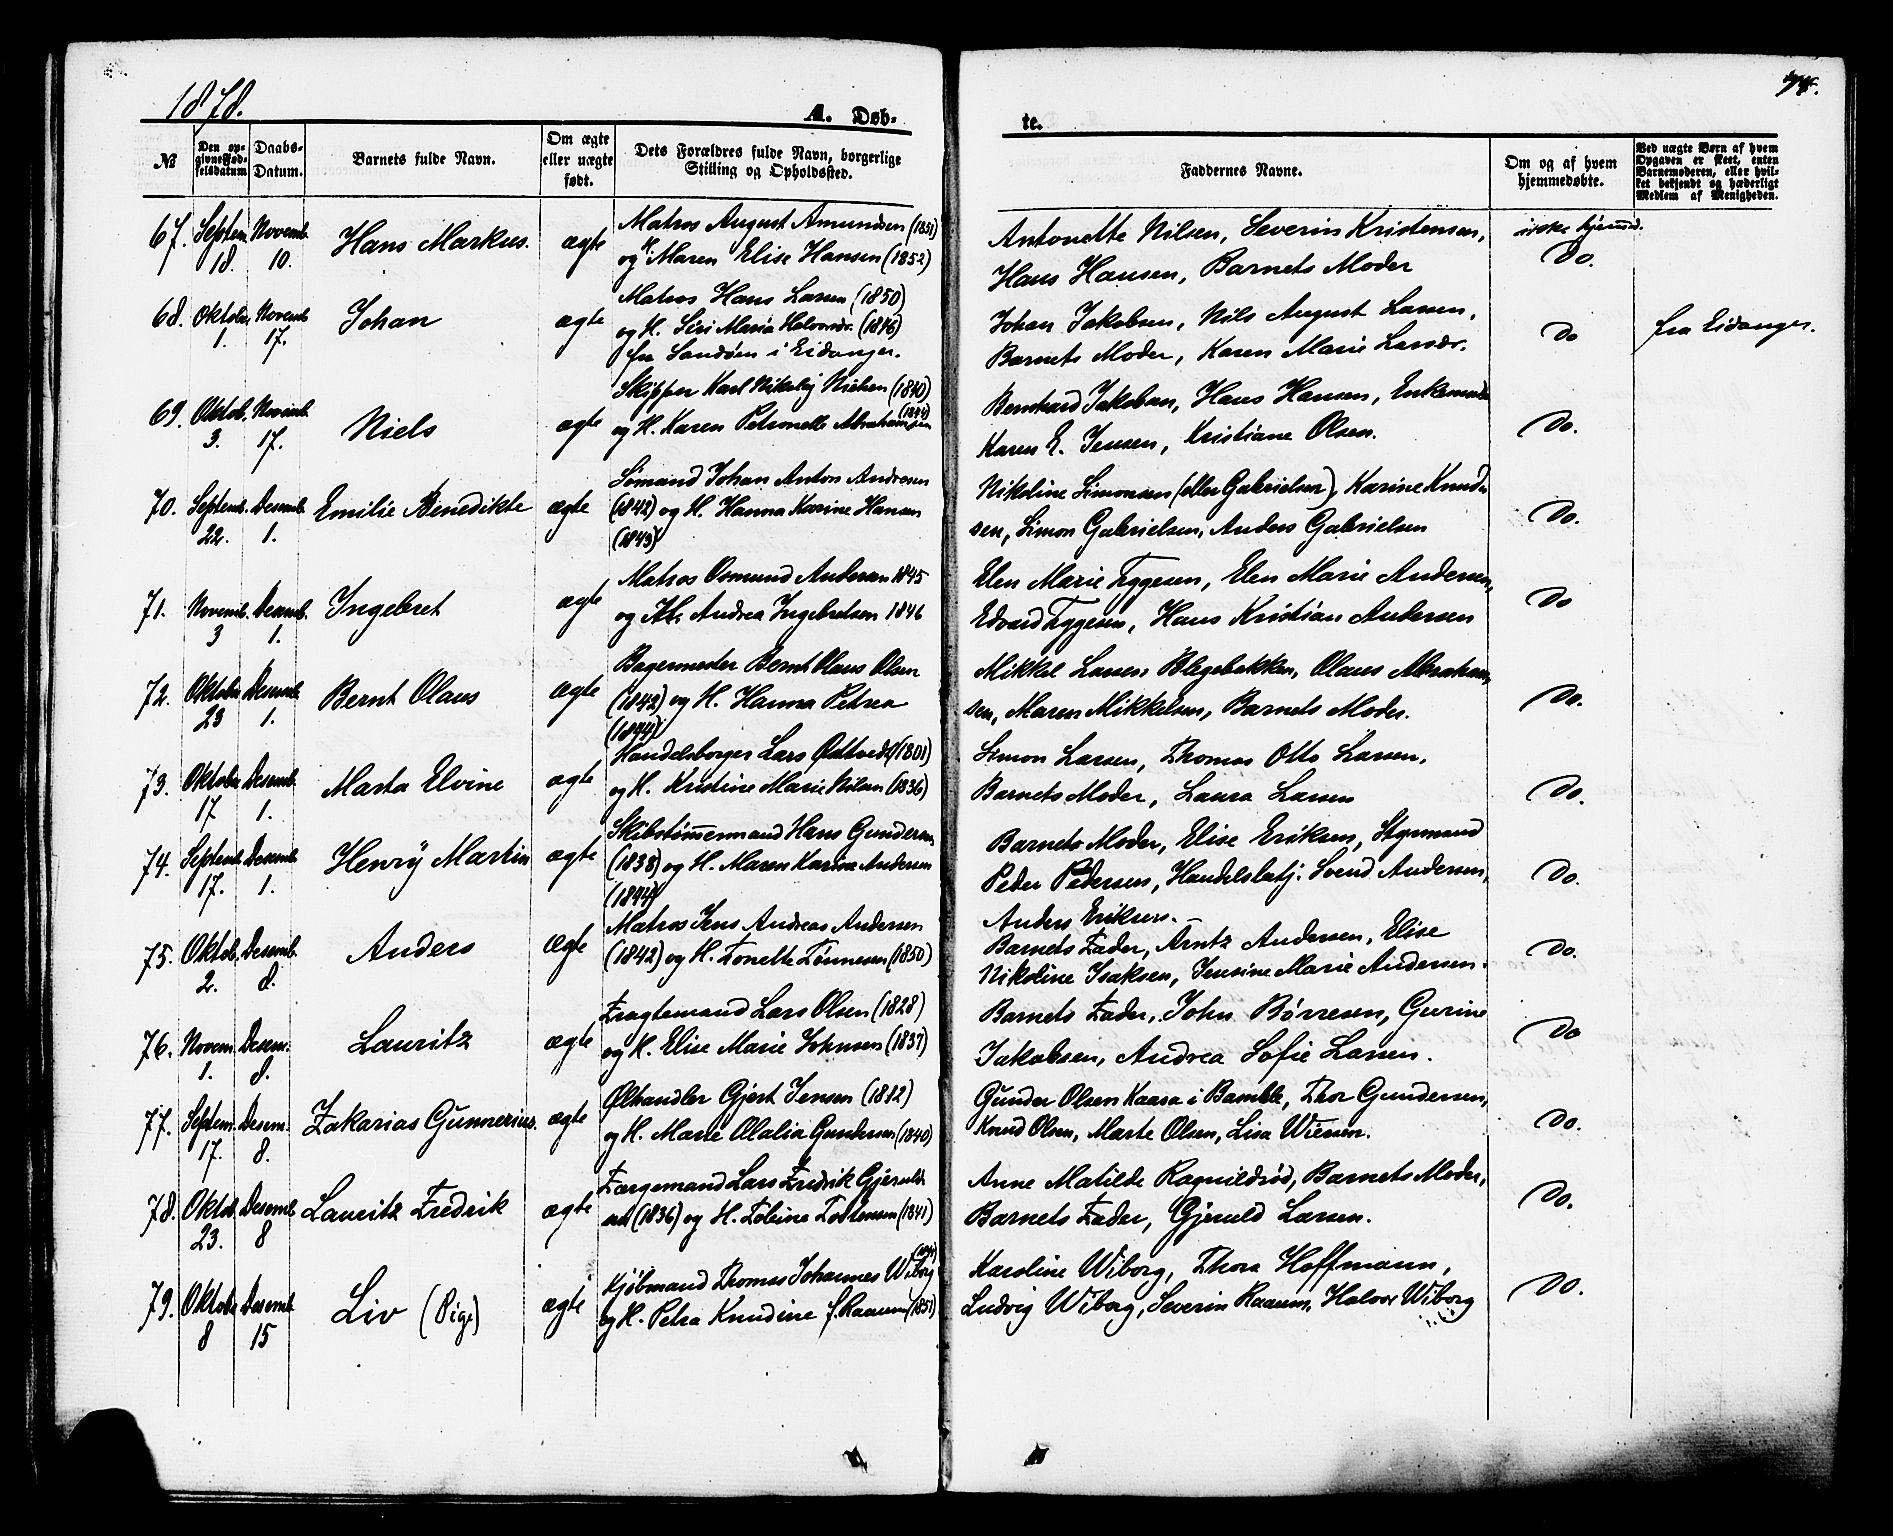 1878.
A. Døb-
te.
№
Den op-
givne Fød-
selsdatum
Daabs-
Datum.
Barnets fulde Navn.
Om ægte
eller uægte
født.
Dets Forældres fulde Navn, borgerlige
Stilling og Opholdssted.
Faddernes Navne.
Om og af hvem
hjemmedøbte.
Ved uægte Børn af hvem
Opgaven er skeet, enten
Barnemoderen, eller hvil-
ket bekjendt og hæderligt
Medlem af Menigheden.
67. Septem. 18. Novemb. 10. Hans Markus. ægte
Matros August Amundsen (1851)
og K. Maren Elise Hansen (1852)
Antonette Nilsen, Severin Kristensen,
Hans Hansen, Barnets Moder
ikke hjemmed.
Do.
68. Oktober 1. Novemb. 17. Johan ægte
Matros Hans Larsen (1850)
og H. Siri Maria Halvorsdr. (1846)
fra Sandøen i Eidanger.
Johan Jakobsen, Nils August Larsen,
Barnets Moder, Karen Marie Larsdr.
Do
fra Eidanger.
69. Oktob. 3. Novemb. 17. Niels ægte
Skipper Karl Nikolaj Nielsen (1840)
og H. Karen Petronelle Abrahamsen
Bernhard Jakobsen, Hans Hansen, Enkemadm
Karen E. Jensen, Kristiane Olsen.
Do.
70. Septemb. 22. Desemb. 1. Emilie Benedikte ægte
Sømand Johan Anton Andresen
(1842) og H. Hanna Karine Hansen
(1843)
Nikoline Simonsen (eller Gabrielsen), Karine Knud-
sen, Simon Gabrielsen, Anders Gabrielsen
Do.
71. Novemb. 3 Desemb. 1. Ingebret ægte
Matros Osmund Andersen 1845
og H. Andrea Ingebretsen 1846
Elen Marie Tyggesen, Elen Marie Andersen,
Edvard Tyggesen, Hans Kristian Andersen
Do
72. Oktober 23 Desemb. 1. Bernt Olaus ægte
Bagermester Bernt Olaus Olsen
(1842) og H. Hanna Petrea
(1844)
Mikkel Larsen Blegebakken, Olaus Abraham-
sen, Maren Mikkelsen, Barnets Moder.
Do.
73. Oktober 17 Desemb. 1. Marta Elvine ægte
Handelsborger Lars Østtvedt (1801)
og H. Kristine Marie Nilsen (1836)
Simon Larsen, Thomas Otto Larsen,
Barnets Moder, Laura Larsen
Do.
74. Septemb. 17. Desemb. 1. Henry Martin ægte
Skibstømmermand Hans Gundersen
(1838) og H. Maren Karina Andersen
(1844)
Barnets Moder, Elise Eriksen, Styrmand
Peder Pedersen, Handelsbetj. Svend Andersen,
Anders Eriksen.
Do.
75. Oktob. 2. Desemb. 8. Anders ægte
Matros Jens Andreas Andersen
(1842) og H. Tonette Tønnesen (1850)
Barnets Fader, Arntz Andersen, Elise
Nikoline Isaksen, Jensine Marie Andersen.
Do.
76. Novem. 1. Desem. 8. Lauritz ægte
Fragtemand Lars Olsen (1828)
og H. Elise Marie Johnsen (1837)
Barnets Fader, John Børresen, Gurine
Jakobsen, Andrea Sofie Larsen.
Do
77. Septem. 17. Desem. 8. Zakarias Gunnerius. ægte
Ølhandler Gjert Jensen (1812)
og H. Marte Olalia Gundersen (1840)
Gunder Olsen Kaasa i Bamble, Thor Gundersen,
Knud Olsen, Marte Olsen, Lisa Wiersen.
Do.
78. Oktob. 23. Desemb. 8 Lauritz Fredrik ægte
Færgemand Lars Fredrik Gjeruld-
sen (1836) og H. Tobine Torstensen (1841)
Anne Matilde Ragnildrød, Barnets Moder,
Barnets Fader, Gjeruld Larsen.
Do.
79. Oktober 8 Desemb. 15 Liv (Pige) ægte
Kjøbmand Thomas Johannes Wiborg
og H. Petra Knudine f. Raaum (1851)
Karoline Wiborg, Thora Hoffmann,
Ludvig Wiborg, Severin Raaum, Halvor Wiborg
Do.